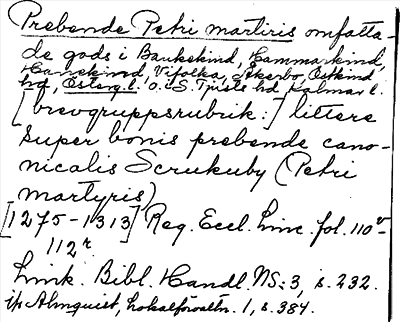 Prebende Petri martiris omfatta-
de gods i Bankekind, Hammarkind,
Hanekind, Vifolka, Åkerbo, Östkind
hd, Österg. l. o. S. Tjusts hd Kalmar l.
[brevgruppsrubrik:] littere
super bonis prebende cano-
nicalis Scrukuby (Petri
martyris)
[1275-1313] Reg. Eccl. Linc. fol. 110v-
112r
Link. Bibl. Handl. NS: 3, s. 232.
jfr Almquist, Lokalförvaltn. 1, s. 384.